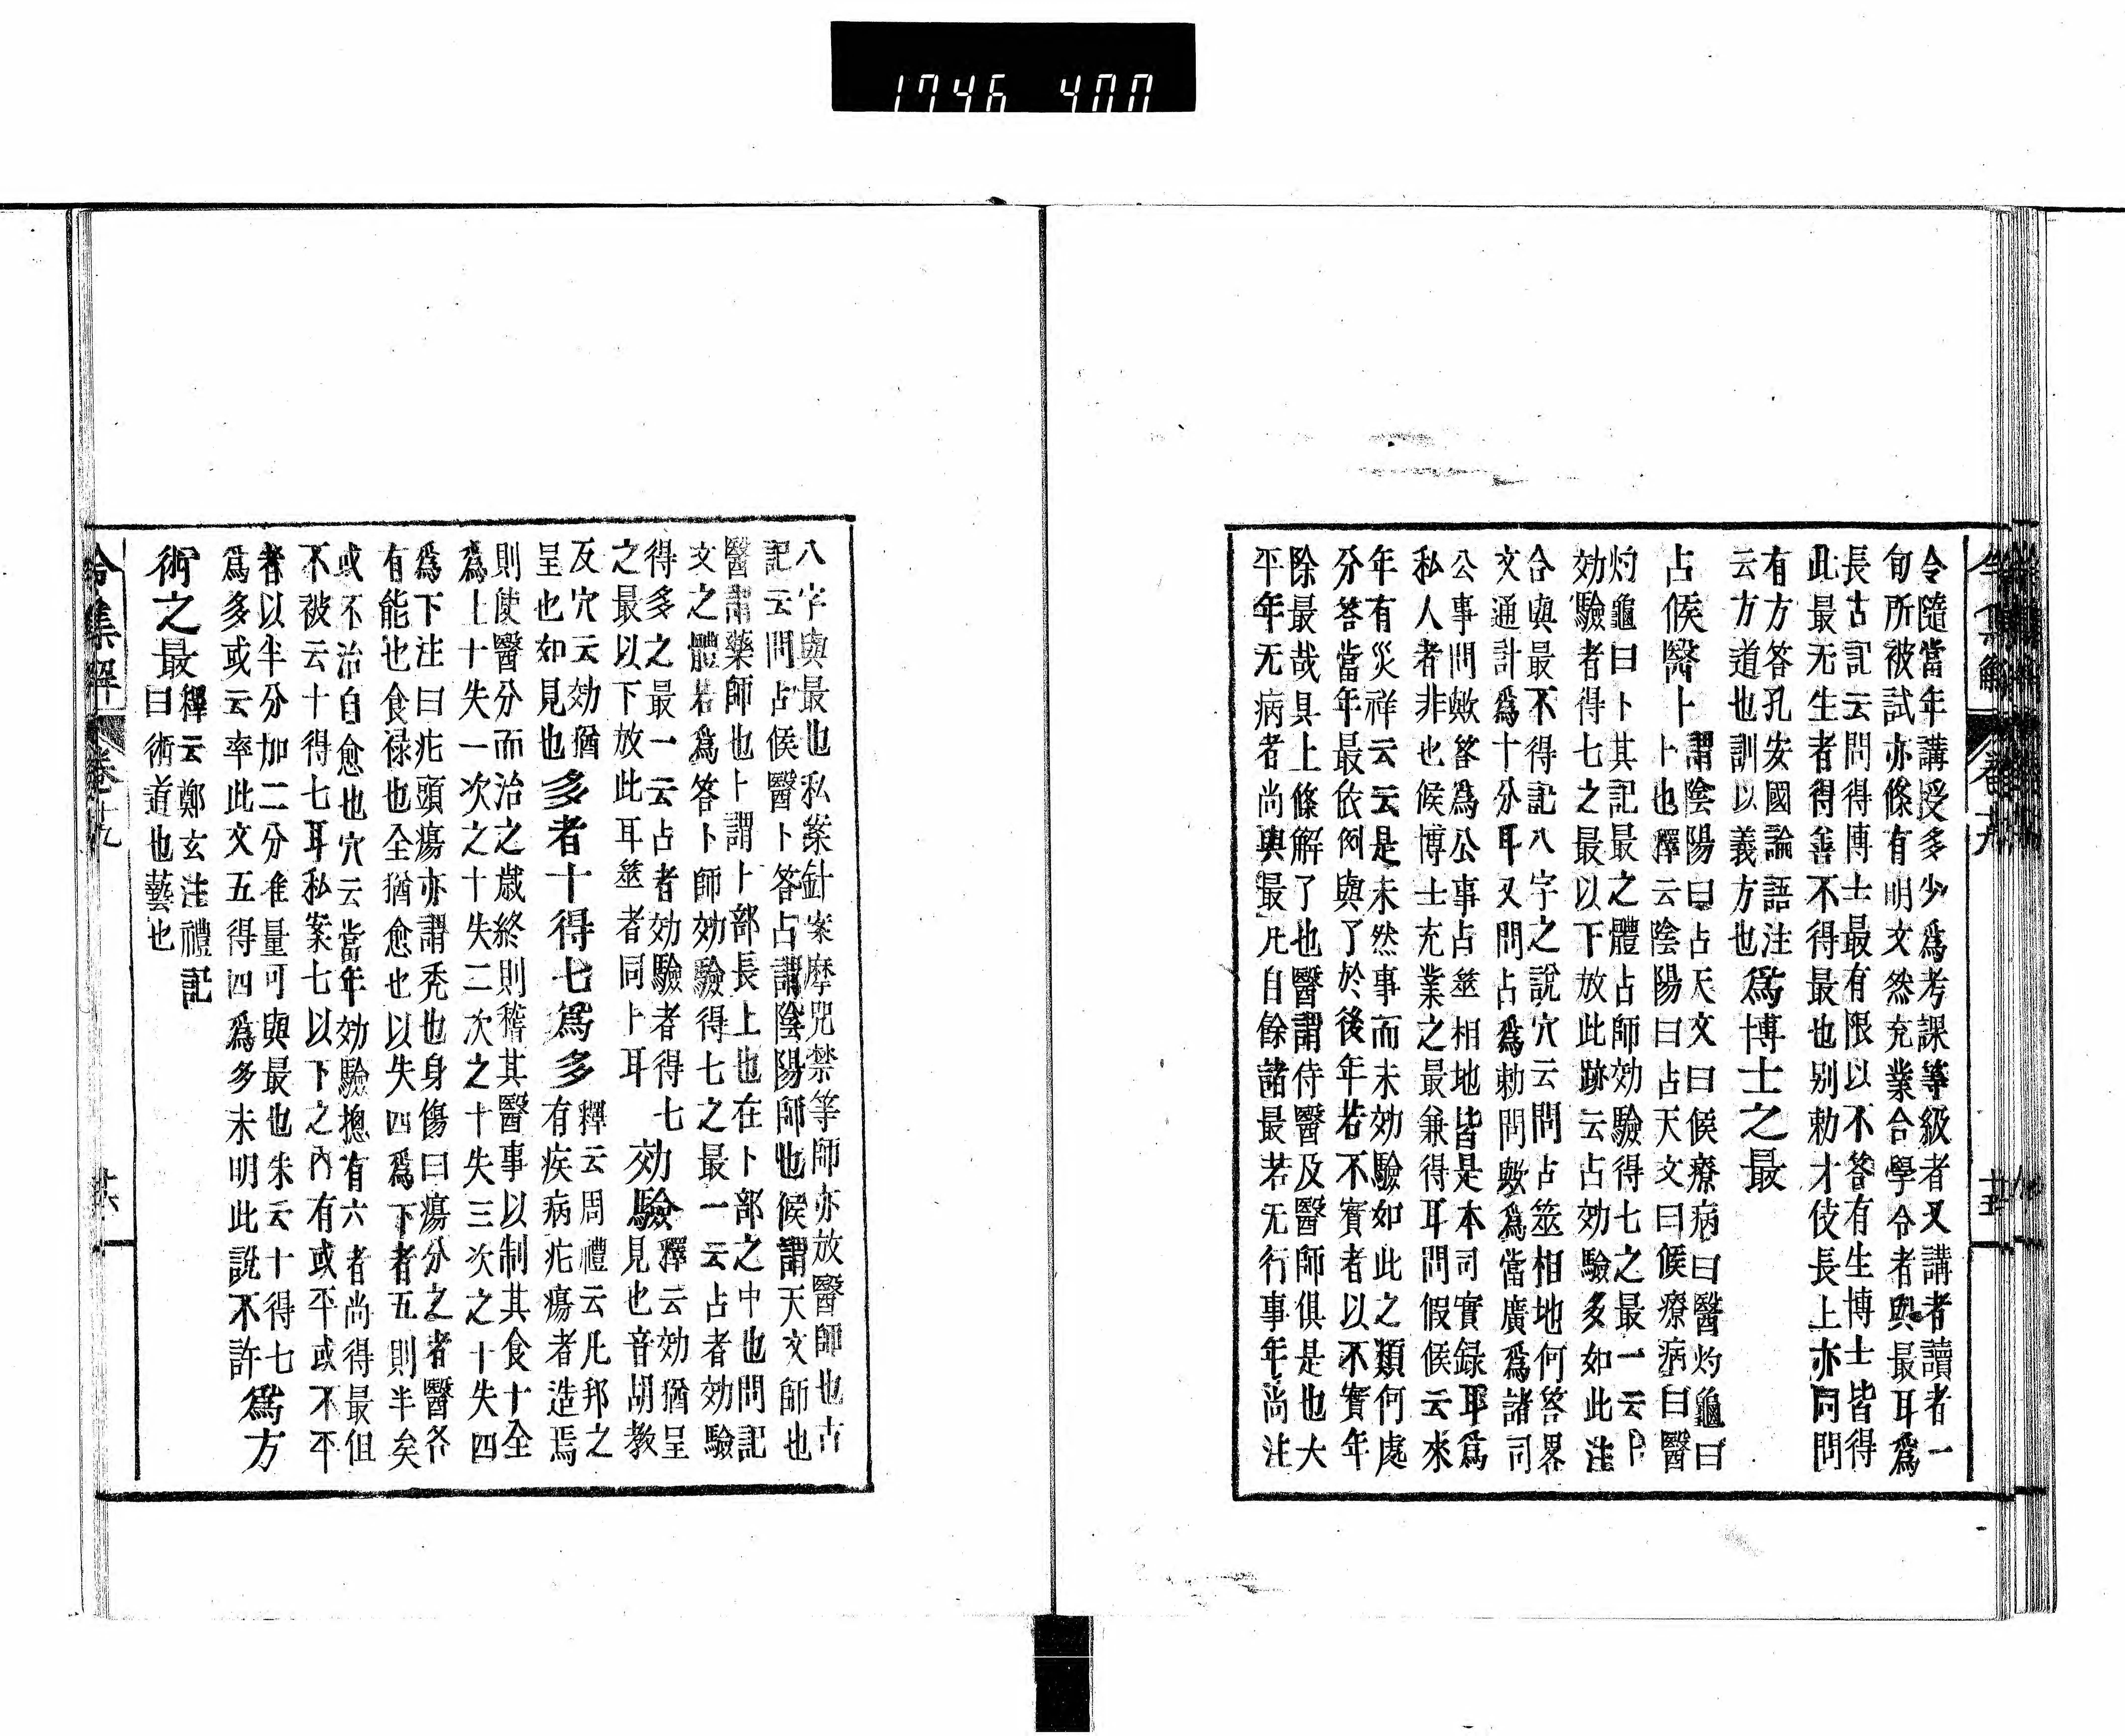 1746 400
令隨當年講授多少爲考課等級者又講者讀者一
旬所被試亦條有明文然充業合學令者與最耳爲
長古記云問得博士最有限以不答有生博士皆得
此最无生者得善不得最也別勅才伎長上亦同問
有方答孔安國論語注
云方道也訓以義方也
爲博士之最
占候醫卜
謂陰陽曰占天文曰候療病曰醫灼龜曰
卜也釋云陰陽曰占天文曰候療病曰醫
灼龜曰卜其記最之體占師効驗得七之最一云卜
効驗者得七之最以下放此跡云占効驗多如此注
合與最不得記八字之說穴云問占筮相地何答畧
文通計爲十分耳又問占爲勅問歟爲當廣爲諸司
公事問歟答爲公事占筮相地皆是本司實録耶爲
私人者非也候博士充業之最兼得耳問假候云來
年有災祥云云是未然事而未効驗如此之類何處
分答當年最依例與了於後年若不實者以不實年
除最哉具上條解了也醫謂侍醫及醫師俱是也大
平年无病者尚與最凡自餘諸最若无行事年尚注
八字與最也私案針案摩咒禁等師亦放醫師也古
記云問占候醫卜答占謂陰陽師也候謂天文師也
醫謂藥師也卜謂卜部長上也在卜部之中也問記
文之體若爲答卜師効驗得七之最一云占者効驗
得多之最一云占者効驗者得七
之最以下放此耳筮者同卜耳
効驗
釋云効猶呈
見也音胡教
反穴云効猶
呈也如見也
多者十得七爲多
釋云周禮云凡邦之
有疾病疕瘍者造焉
則使醫分而治之歳終則稽其醫事以制其食十全
爲上十失一次之十失二次之十失三次之十失四
爲下注曰疕頭瘍亦謂禿也身傷曰瘍分之者醫各
有能也食禄也全猶愈也以失四爲下者五則半矣
或不治自愈也穴云當年効驗摠有六者尚得最但
不被云十得七耳私案七以下之內有或平或不平
者以半分加二分准量可與最也朱云十得七
爲多或云率此文五得四爲多未明此說不許
爲方
術之最
釋云鄭玄注禮記
曰術道也藝也
令集解 卷十九 廿六